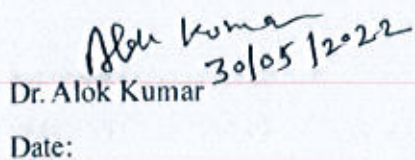 Alok Kumar
30/05/2022
Dr. Alok Kumar
Date: